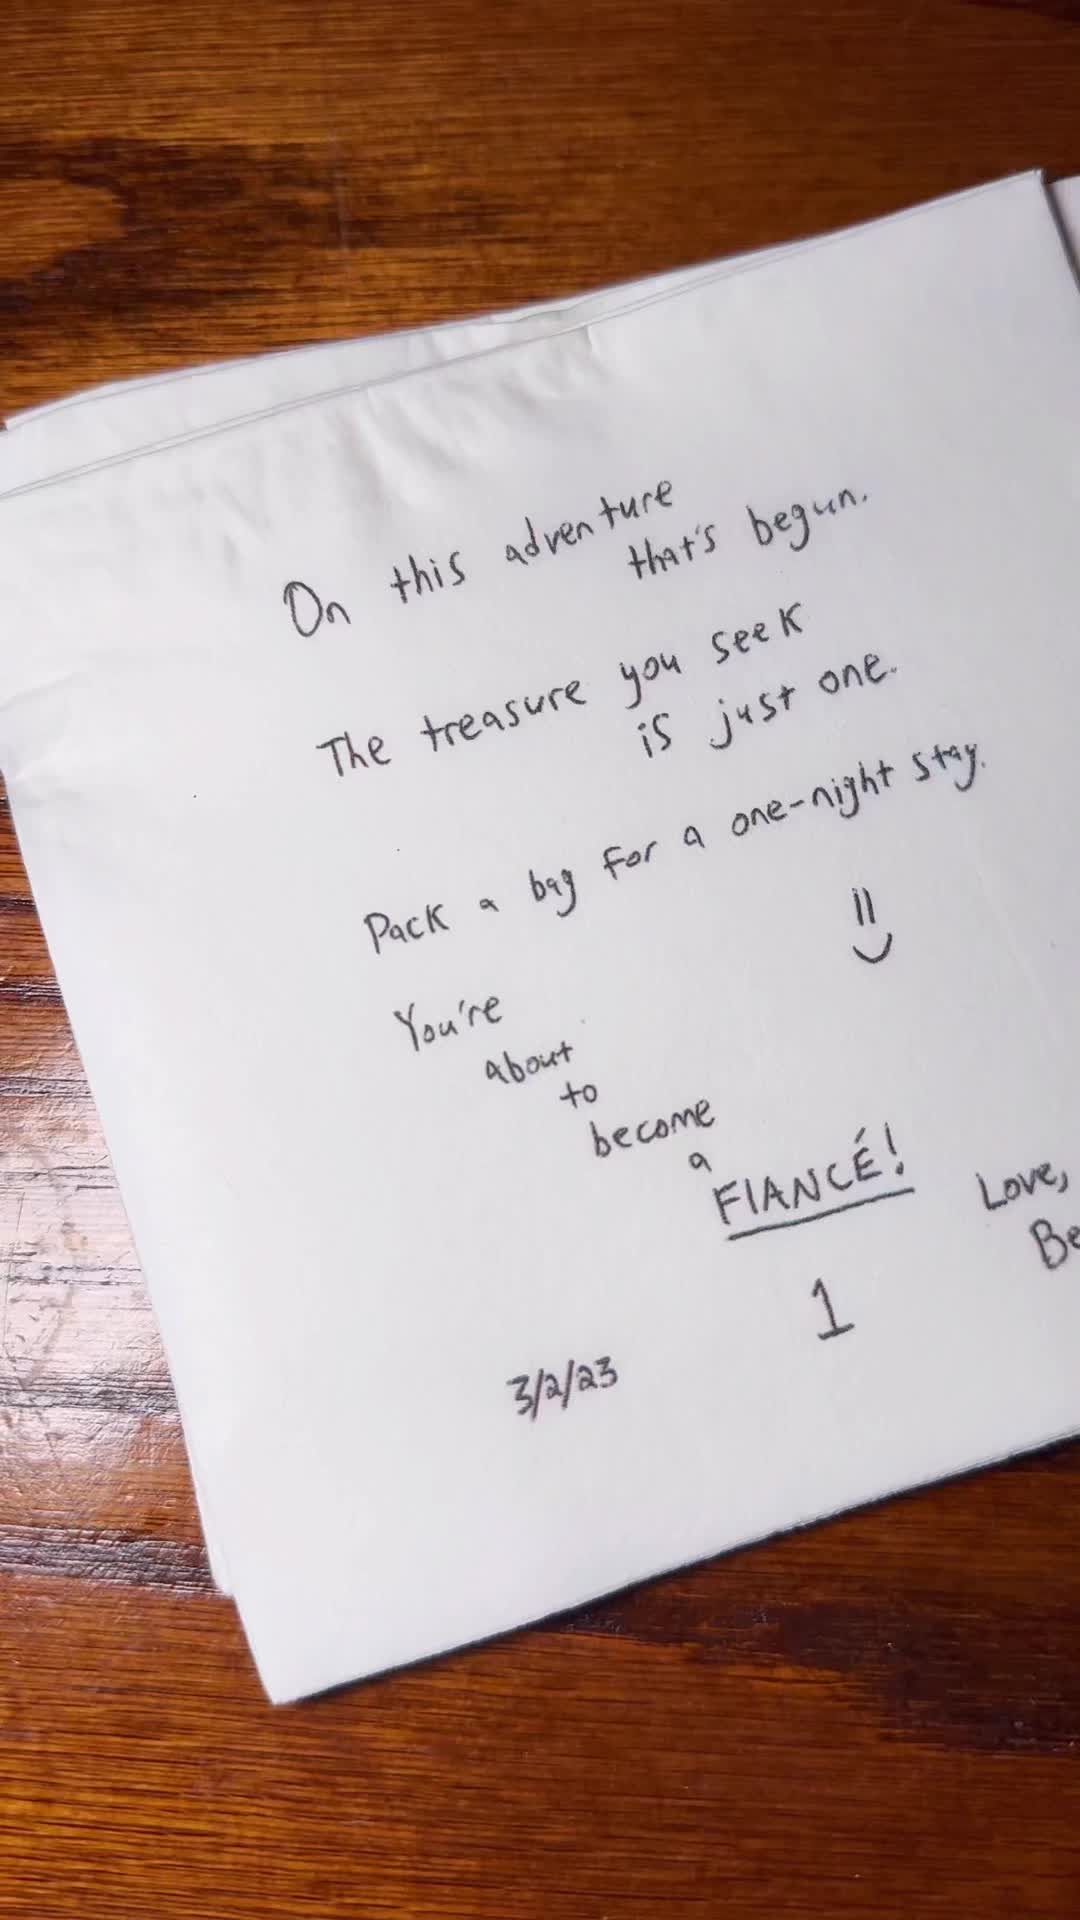 On this adventure
that's begun.
The treasure you seek
is just one.
Pack a bag for a one-night stay.
You're
about
to
become
a
FIANCÉ!
Love,
Be
1
3/2/23